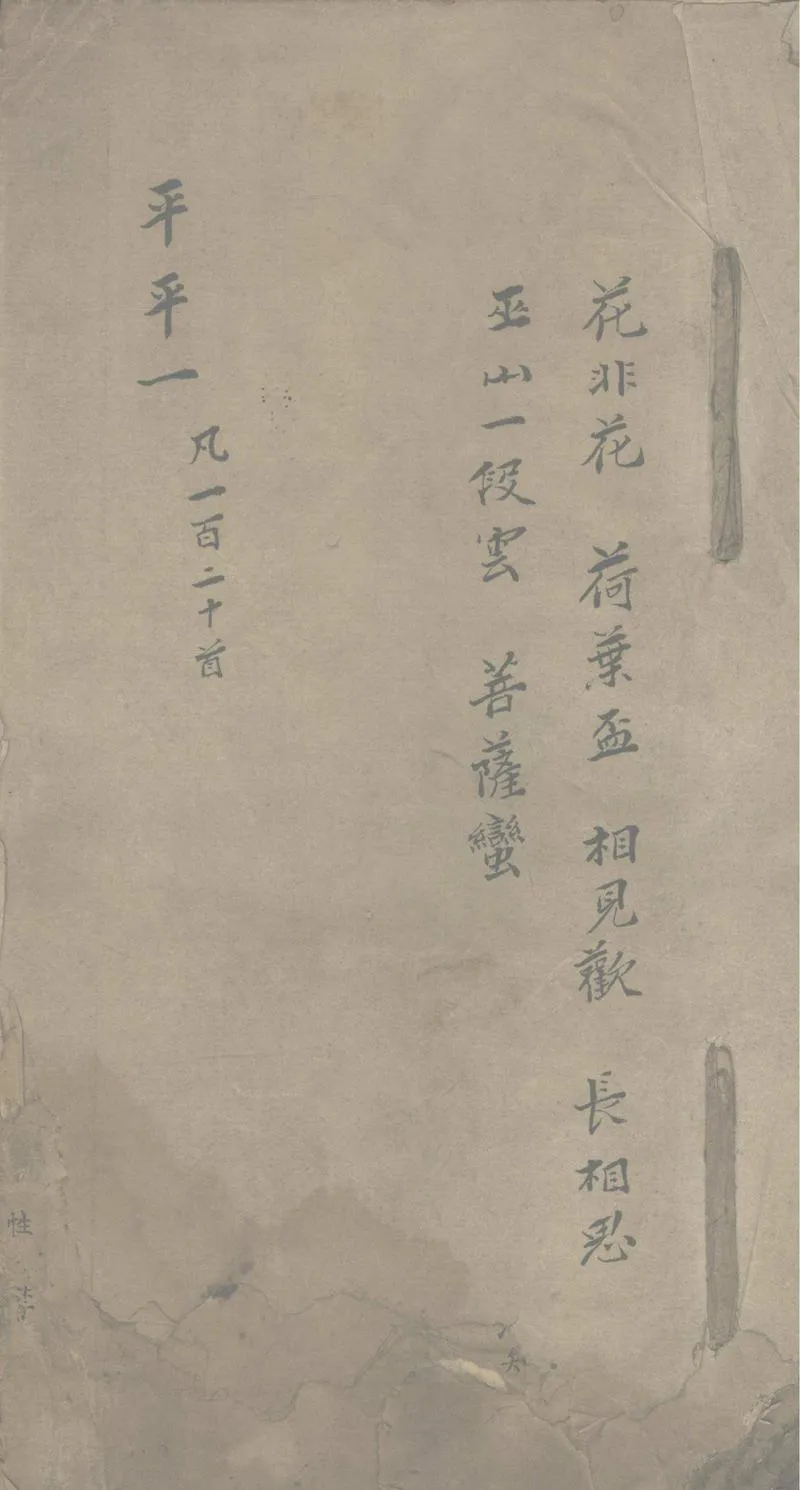 花非花 荷葉盃 相見歡 長相思
巫山一段雲 菩薩蠻
平平一
凡一百二十首
知
性